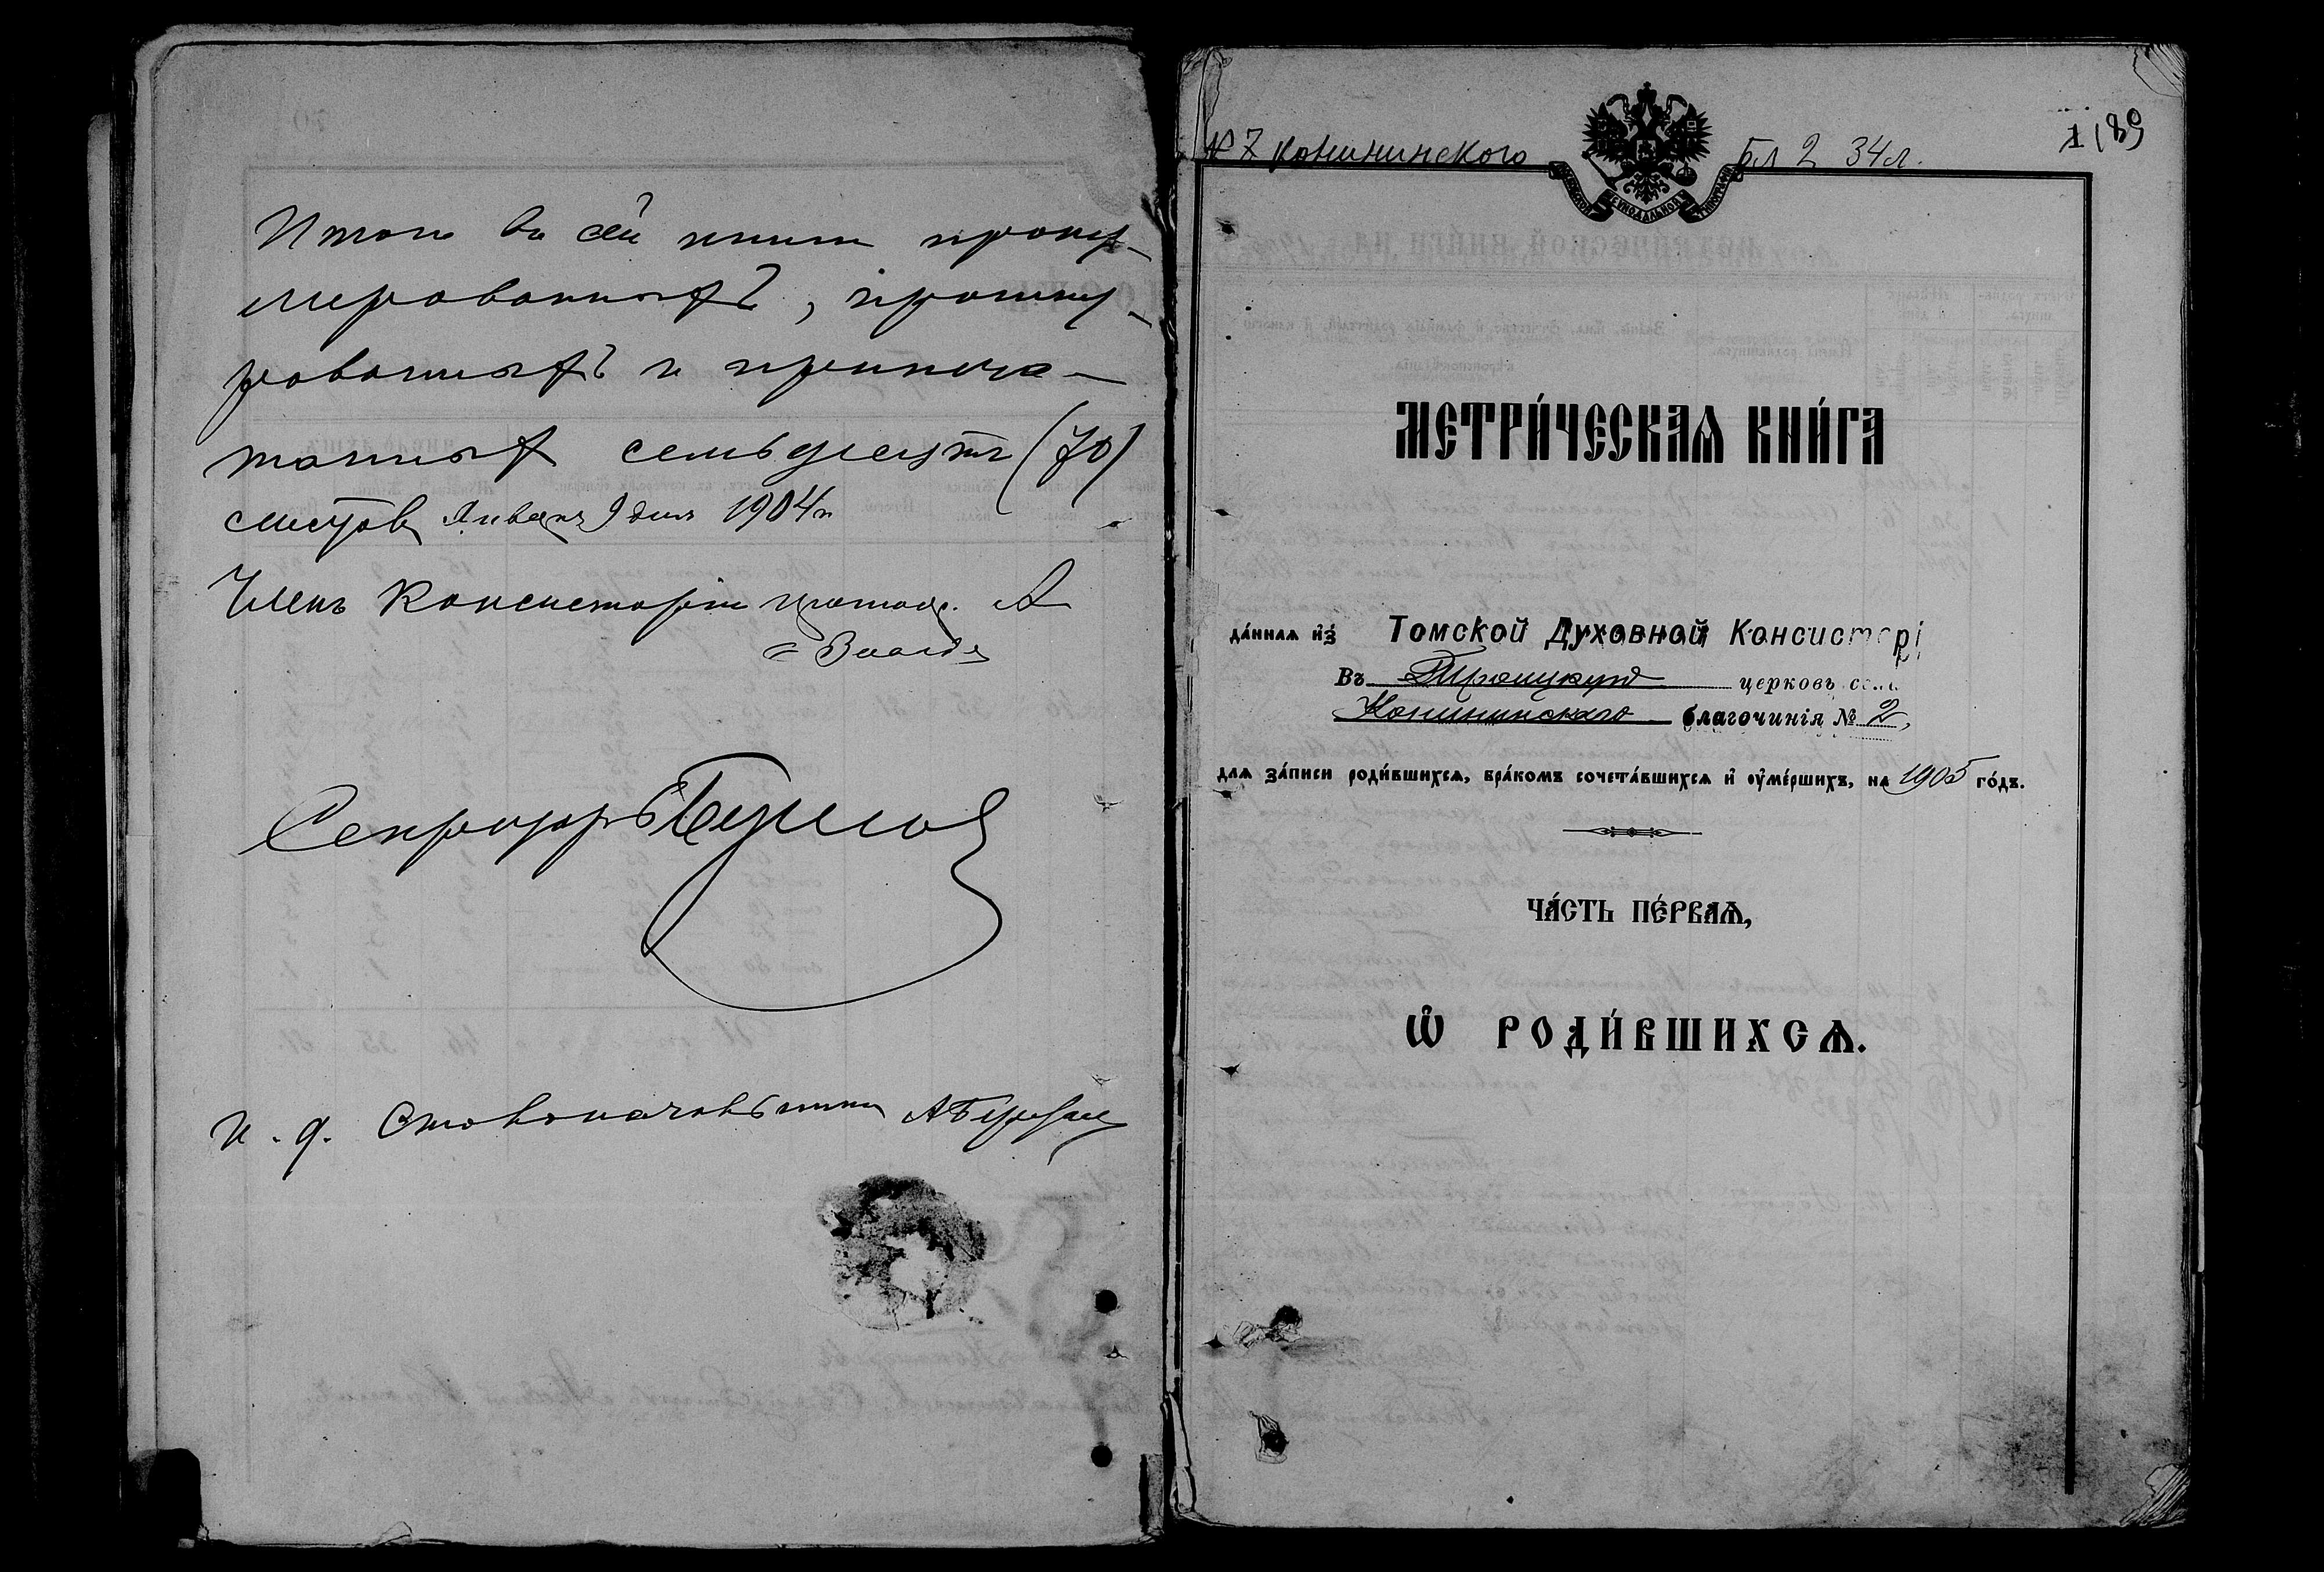 Итого въ сей книгѣ прону-
мерованныхъ, прошну-
рованныхъ и припеча-
танныхъ семьдесятъ (70)
листовъ Января 9 дня 1904 г.
Членъ Консисторіи протоіер. А
Секретарь
И. д. Столоначальника
№ 7 Конининского Бл 2 34 л.
1 189
СИНОДАЛЬНОЙ ТИПОГРАФІИ
МЕТРИ́ЧЕСКАѦ КНИ́ГА
да́ннаѧ и҆з̾ Томской Духовной Консисторі
Въ Троицкую церковь села
Конининскаго благочинія № 2,
длѧ за́писи роди́вшихсѧ, бра́комъ сочета́вшихсѧ и҆ ᲂу҆ме́ршихъ, на 1905 го́дъ.
ЧА́СТЬ ПЕ́РВАѦ,
Ѡ҆ РОДИ́ВШИХСѦ.